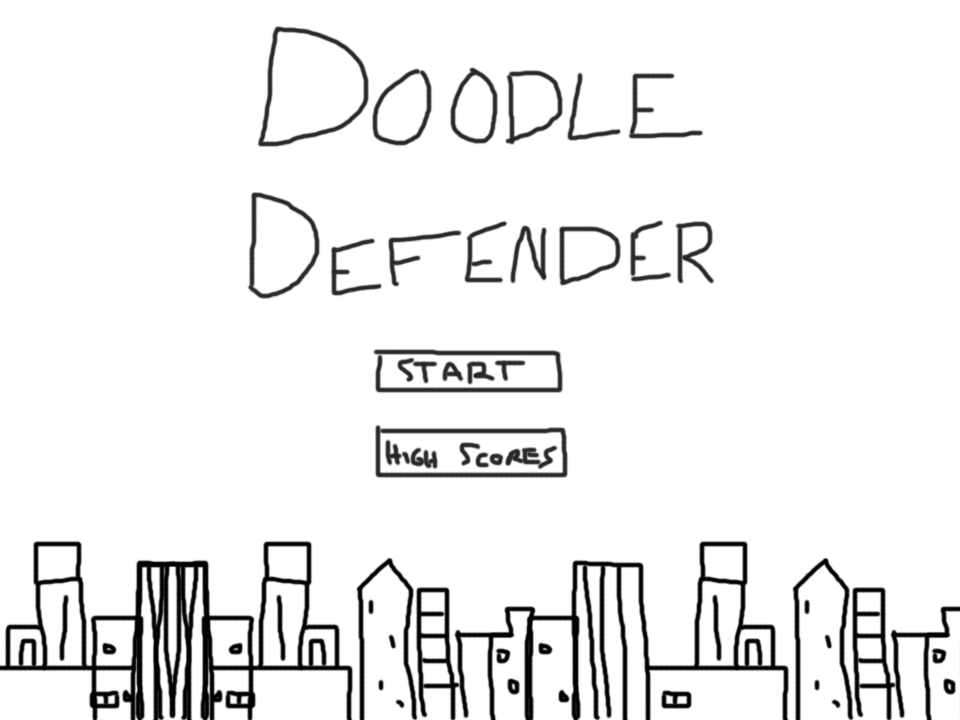 DOODLE
DEFENDER
START
HIGH SCORES